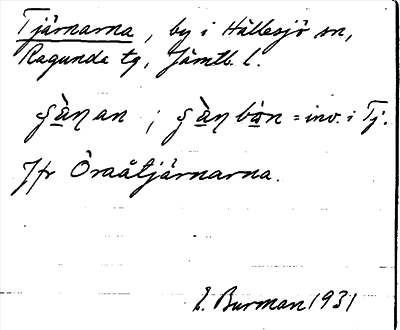 Tjärnarna, by i Hällesjö sn,
Ragunda tg, Jämtl. l.
= inv. i Tj.
Jfr Öraåtjärnarna.
E. Burman 1931